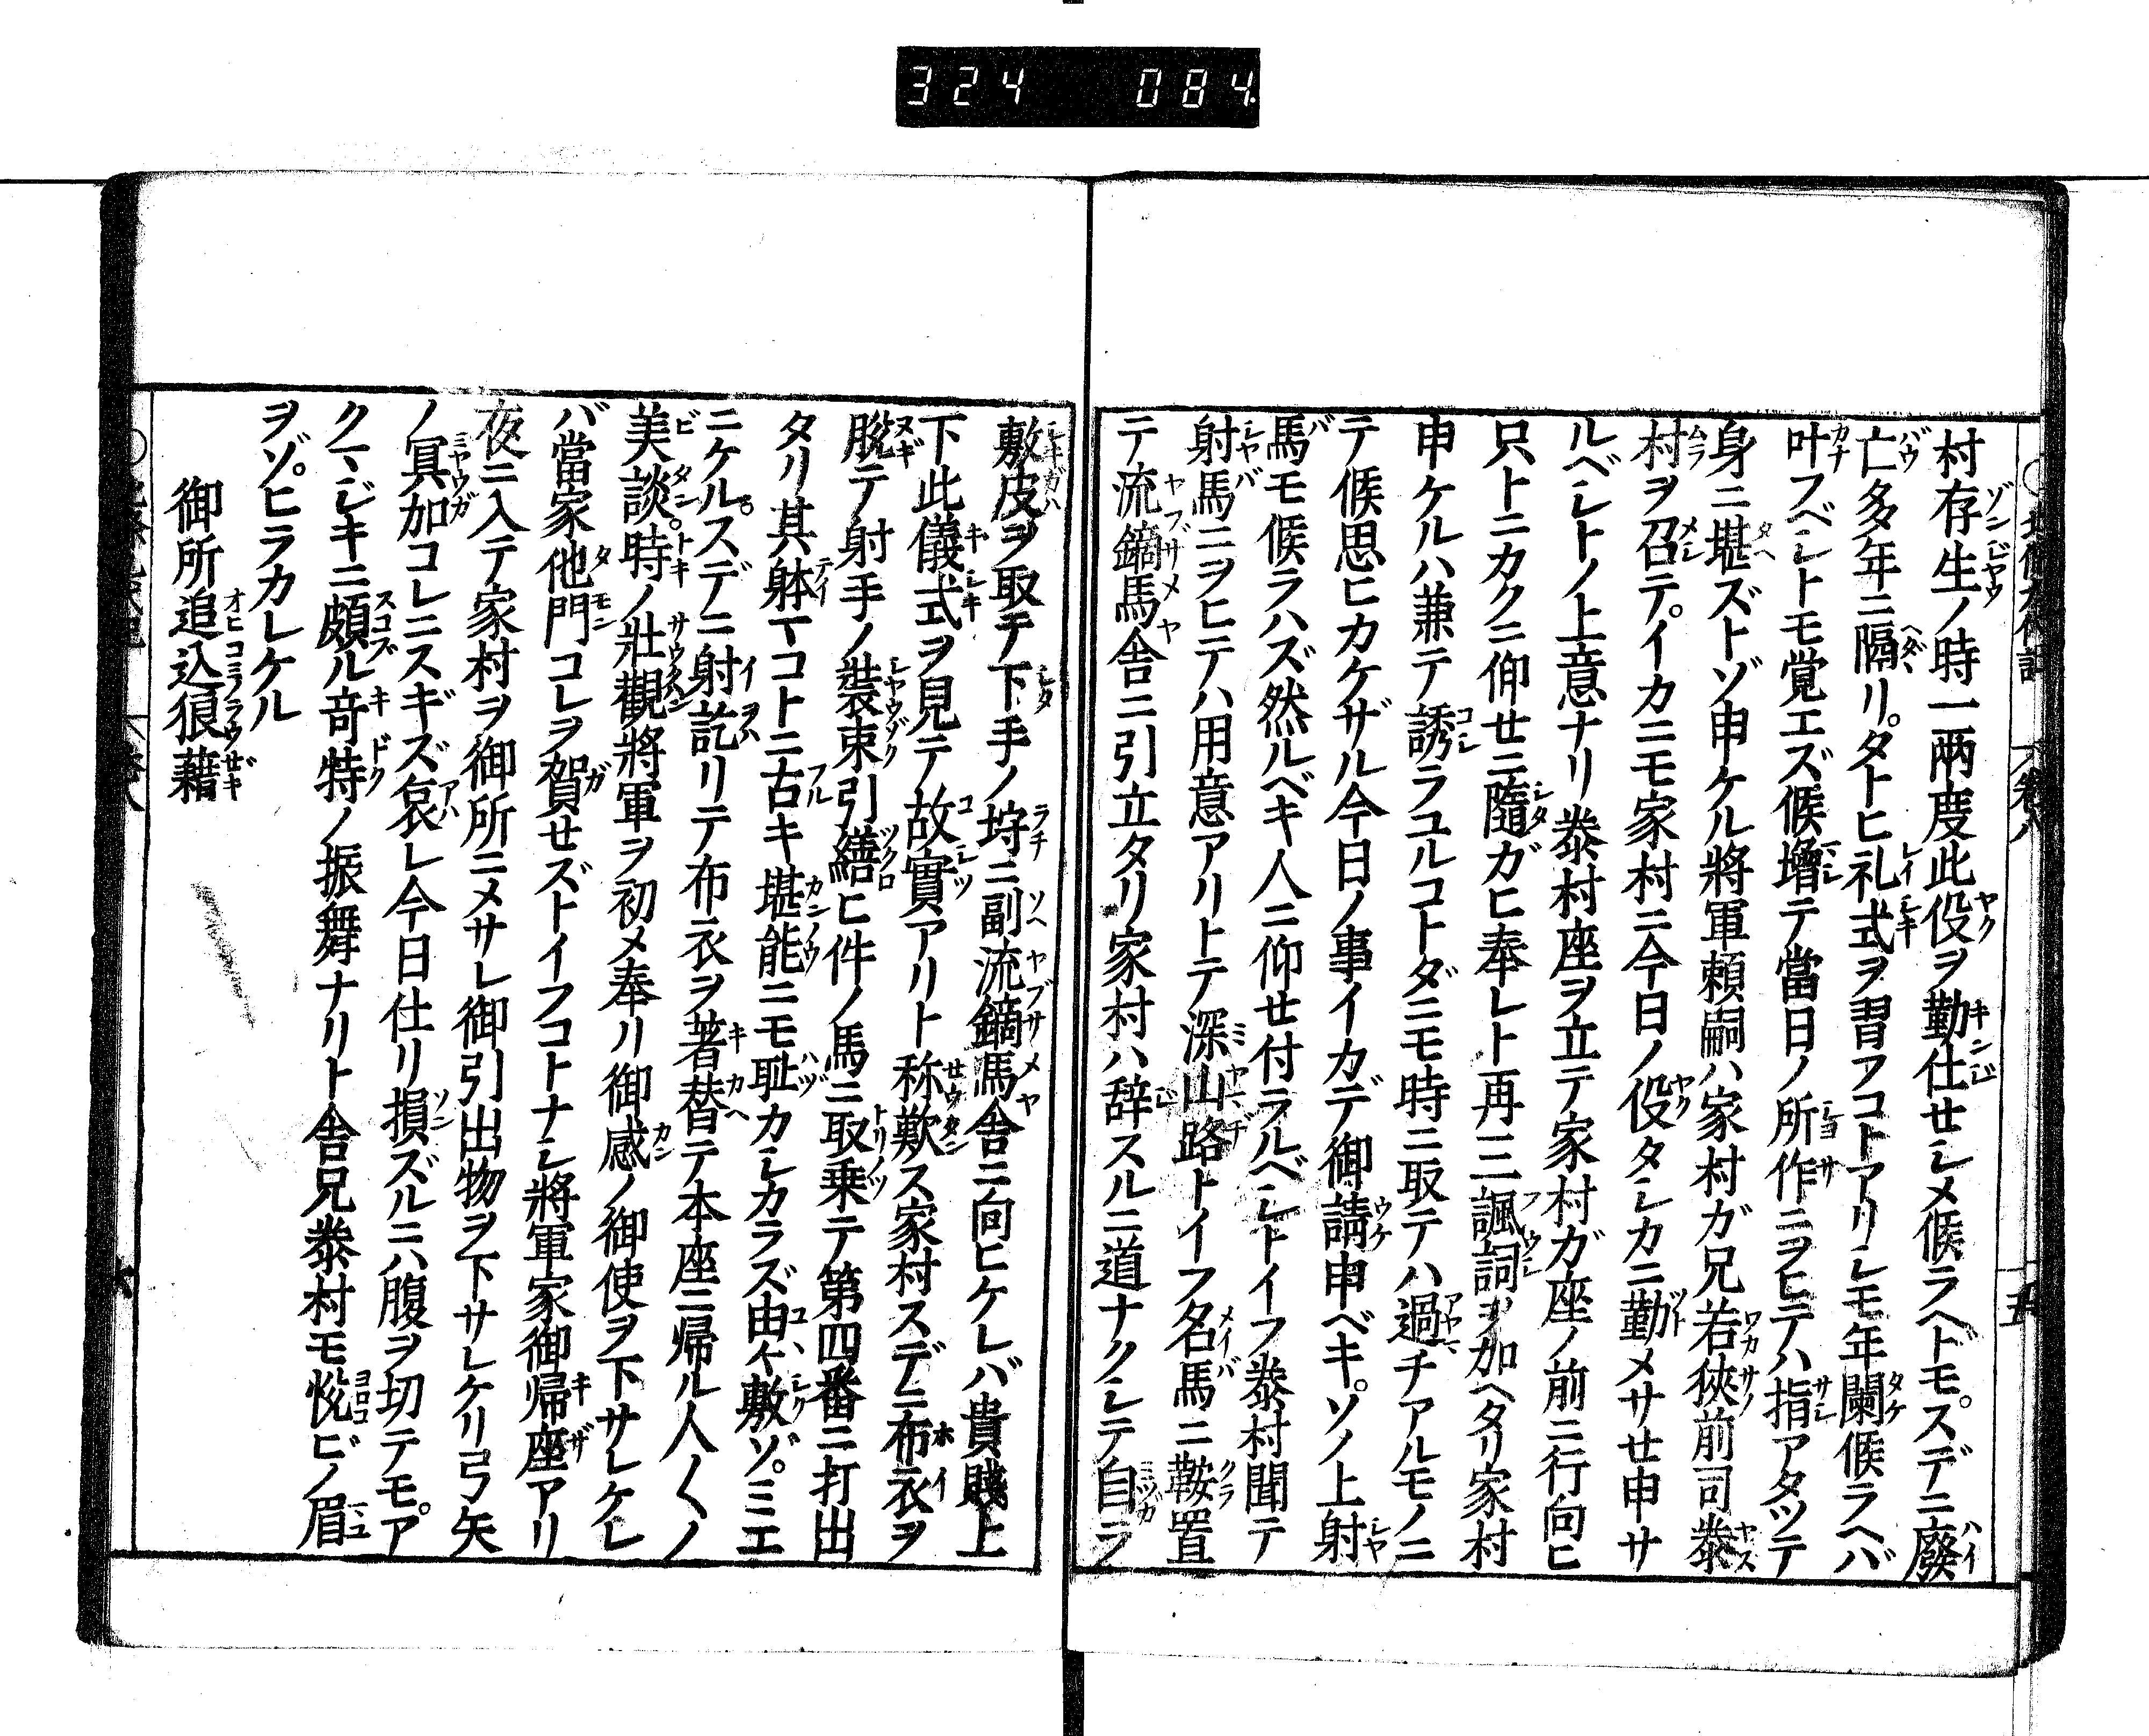 324 084.
村存生ノ時一兩度此役ヲ勤仕セシメ候ラヘドモ。スデニ廢
亡多年ニ隔リ。タトヒ礼式ヲ習フコトアリシモ年闌候ラヘバ
叶フベシトモ覚エズ候增テ當日ノ所作ニヲヒテハ指アタツテ
身ニ堪ズトゾ申ケル將軍頼嗣ハ家村ガ兄若狹前司泰
村ヲ召テ。イカニモ家村ニ今日ノ役タシカニ勤メサセ申サ
ルベシトノ上意ナリ泰村座ヲ立テ家村ガ座ノ前ニ行向ヒ
只トニカクニ仰セニ隨ガヒ奉レト再三諷詞ヲ加ヘタリ家村
申ケルハ兼テ誘ラユルコトダニモ時ニ取テハ過チアルモノニ
テ候思ヒカケザル今日ノ事イカデ御請申ベキ。ソノ上射
馬モ候ラハズ然ルベキ人ニ仰セ付ラルベシトイフ泰村聞テ
射馬ニヲヒテハ用意アリトテ深山路トイフ名馬ニ鞍置
テ流鏑馬舎ニ引立タリ家村ハ辞スルニ道ナクシテ自ラ
敷皮ヲ取テ下手ノ埒ニ副流鏑馬舎ニ向ヒケレバ貴賤上
下此儀式ヲ見テ故實アリト称歎ス家村スデニ布衣ヲ
脱テ射手ノ裝束引繕ヒ件ノ馬ニ取乗テ第四番ニ打出
タリ其躰マコトニ古キ堪能ニモ耻カシカラズ由々敷ゾ。ミエ
ニケル。スデニ射訖リテ布衣ヲ著替テ本座ニ帰ル人〱ノ
美談。時ノ壯觀將軍ヲ初メ奉リ御感ノ御使ヲ下サレケレ
バ當家他門コレヲ賀セズトイフコトナシ將軍家御帰座アリ
夜ニ入テ家村ヲ御所ニメサレ御引出物ヲ下サレケリ弓矢
ノ冥加コレニスギズ哀レ今日仕リ損ズルニハ腹ヲ切テモ。ア
クマジキニ頗ル奇特ノ振舞ナリト舎兄泰村モ悦ビノ眉
ヲゾ。ヒラカレケル
御所追込狼藉